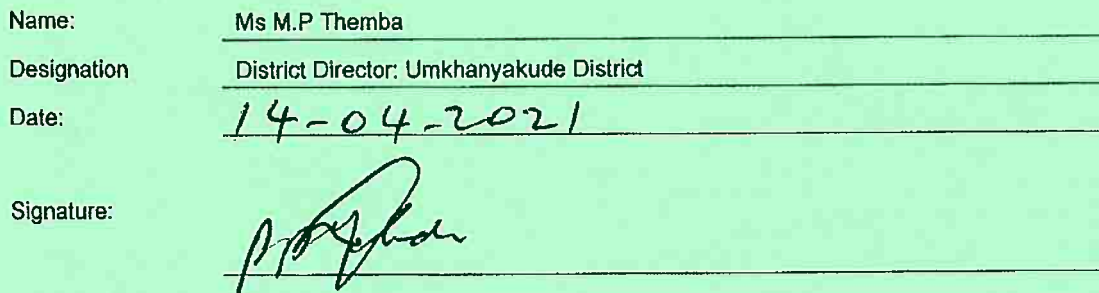 Name: Ms M.P Themba
Designation District Director: Umkhanyakude District
Date: 14-04-2021
Signature: